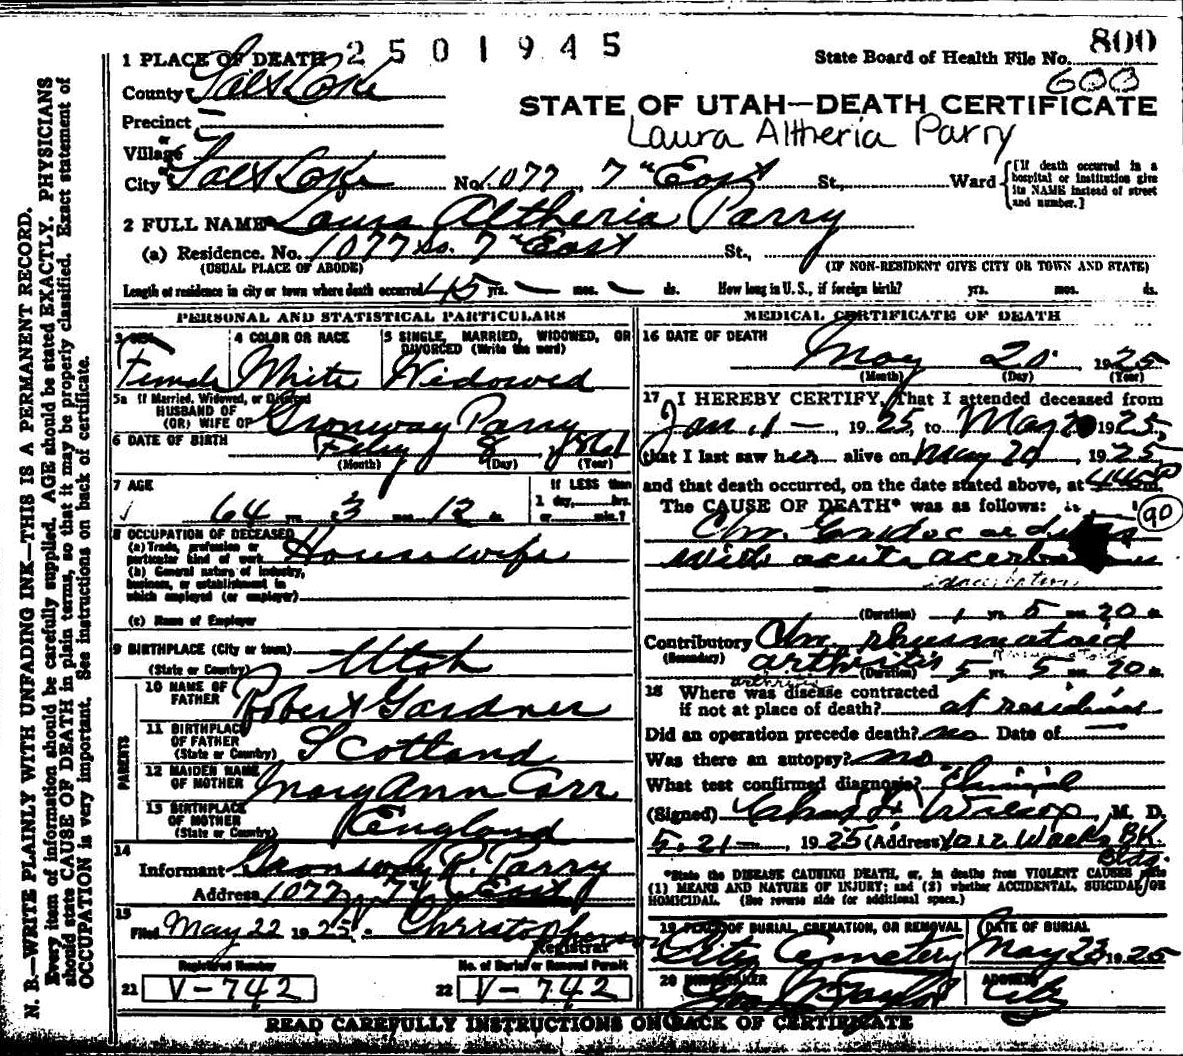 2501945
State Board of Health File No. 800
600
STATE OF UTAH—DEATH CERTIFICATE
Laura Altheria Parry
1 PLACE OF DEATH
County Salt Lake
Precinct
or
Village
or
City Salt Lake No. 1077 7" East St., Ward
[If death occurred in a hospital or institution give its NAME instead of street and number.]
2 FULL NAME Laura Altheria Parry
(a) Residence. No. 1077 So. 7" East St.,
(USUAL PLACE OF ABODE) (IF NON-RESIDENT GIVE CITY OR TOWN AND STATE)
Length of residence in city or town where death occurred 45 yrs. — mos. — ds. How long in U. S., if foreign birth? yrs. mos. ds.
PERSONAL AND STATISTICAL PARTICULARS
3 SEX Female
4 COLOR OR RACE White
5 SINGLE, MARRIED, WIDOWED, OR DIVORCED (Write the word) Widowed
5a If Married, Widowed, or Divorced
HUSBAND OF
(OR) WIFE OF Gronway Parry
6 DATE OF BIRTH Feby 8 1861
(Month) (Day) (Year)
7 AGE 64 yrs. 3 mos. 12 ds.
If LESS than
1 day, hrs.
or min.?
8 OCCUPATION OF DECEASED
(a) Trade, profession or particular kind of work Housewife
(b) General nature of industry, business, or establishment in which employed (or employer)
(c) Name of Employer
9 BIRTHPLACE (City or town)
(State or Country) Utah
PARENTS
10 NAME OF FATHER Robert Gardner
11 BIRTHPLACE OF FATHER (State or Country) Scotland
12 MAIDEN NAME OF MOTHER Mary Ann Carr
13 BIRTHPLACE OF MOTHER (State or Country) England
14
Informant Gronway R. Parry
Address 1077 So 7th East
15
Filed May 22 1925 Christopherson
Registrar
Registered Number No. of Burial or Removal Permit
21 V-742 22 V-742
MEDICAL CERTIFICATE OF DEATH
16 DATE OF DEATH
May 20 1925
(Month) (Day) (Year)
17 I HEREBY CERTIFY, That I attended deceased from
Jan. 1 —, 1925, to May 20 1925,
that I last saw her alive on May 20, 1925
and that death occurred, on the date stated above, at 445 P m.
The CAUSE OF DEATH* was as follows:
90
Chr. Endocarditis
with acute
(Duration) 1 yrs. 5 mos. 20 ds.
Contributory Chr. rheumatoid
(Secondary) arthritis
arthritis (Duration) 5 yrs. 5 mos. 20 ds.
18 Where was disease contracted
if not at place of death? at residence
Did an operation precede death? no Date of —
Was there an autopsy? no
What test confirmed diagnosis? Clinical
(Signed) Chas F Wilcox, M. D.
5-21—, 1925 (Address) 1012 Walker BK. Bldg.
*State the DISEASE CAUSING DEATH, or, in deaths from VIOLENT CAUSES state
(1) MEANS AND NATURE OF INJURY; and (2) whether ACCIDENTAL, SUICIDAL, OR
HOMICIDAL. (See reverse side for additional space.)
19 PLACE OF BURIAL, CREMATION, OR REMOVAL City Cemetery
DATE OF BURIAL May 23 1925
20 UNDERTAKER
ADDRESS City
READ CAREFULLY INSTRUCTIONS ON BACK OF CERTIFICATE
N. B.—WRITE PLAINLY WITH UNFADING INK—THIS IS A PERMANENT RECORD.
Every item of information should be carefully supplied. AGE should be stated EXACTLY. PHYSICIANS
should state CAUSE OF DEATH in plain terms, so that it may be properly classified. Exact statement of
OCCUPATION is very important. See instructions on back of certificate.